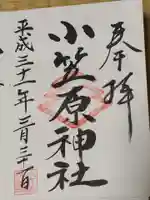 奉拝
小笠原神社
平成三十一年三月三十日